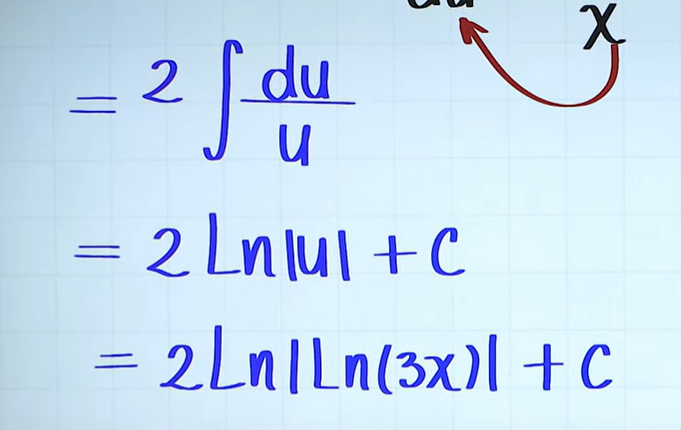 x
= 2 ∫ du/u
= 2 Ln|u| + C
= 2Ln|Ln(3x)| + C